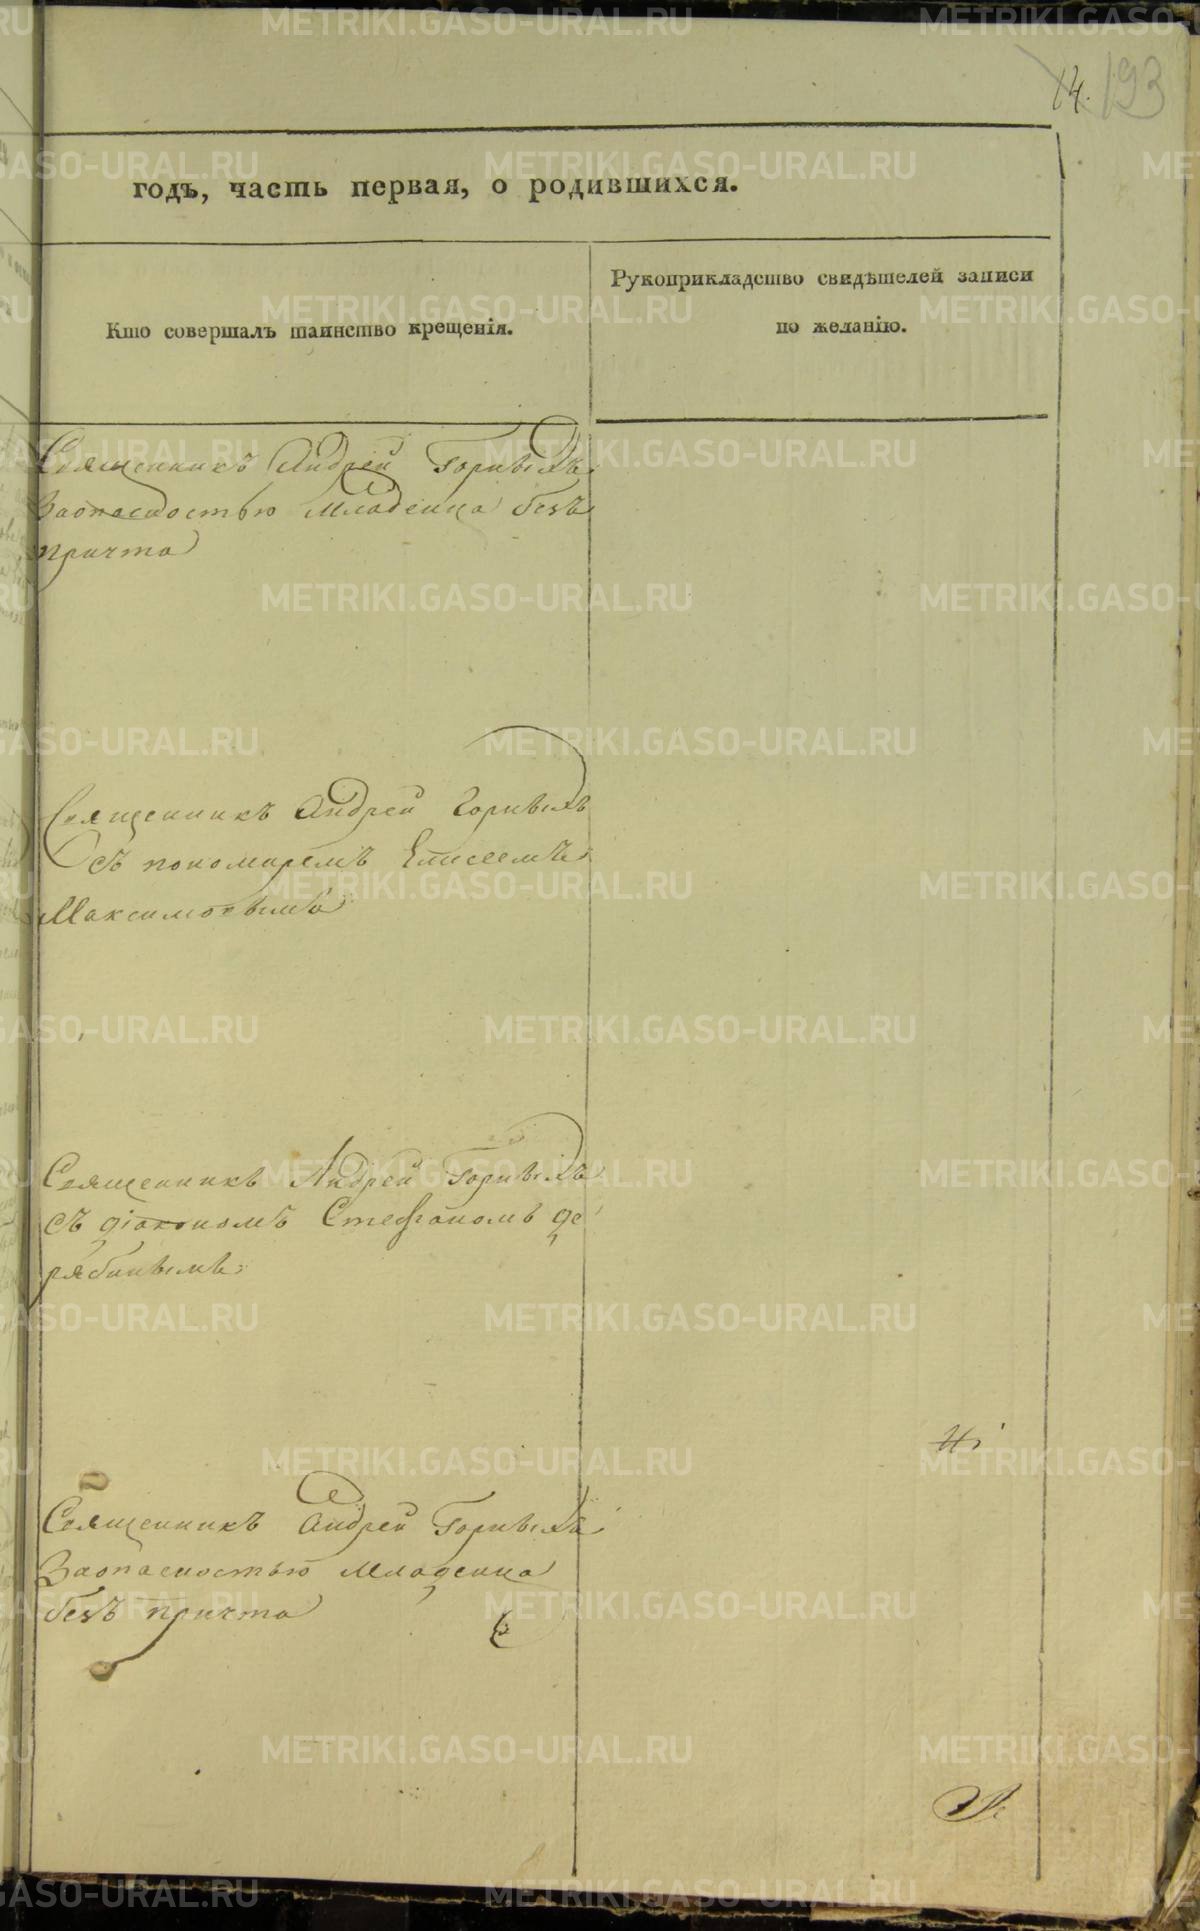 14. 193
годъ, часть первая, о родившихся.
Кто совершалъ таинство крещенія.
Рукоприкладство свидѣтелей записи
по желанію.
Священникъ Андрей Горныхъ
Заопасностью Младенца безъ
причта
Священникъ Андрей Горныхъ
Съ пономаремъ Елисеемъ
Максимовымъ
Священникъ Андрей Горныхъ
съ діакономъ Стефаномъ де
рябинымъ
Священникъ Андрей Горныхъ
Заопасностью Младенца
безъ причта
METRIKI.GASO-URAL.RU